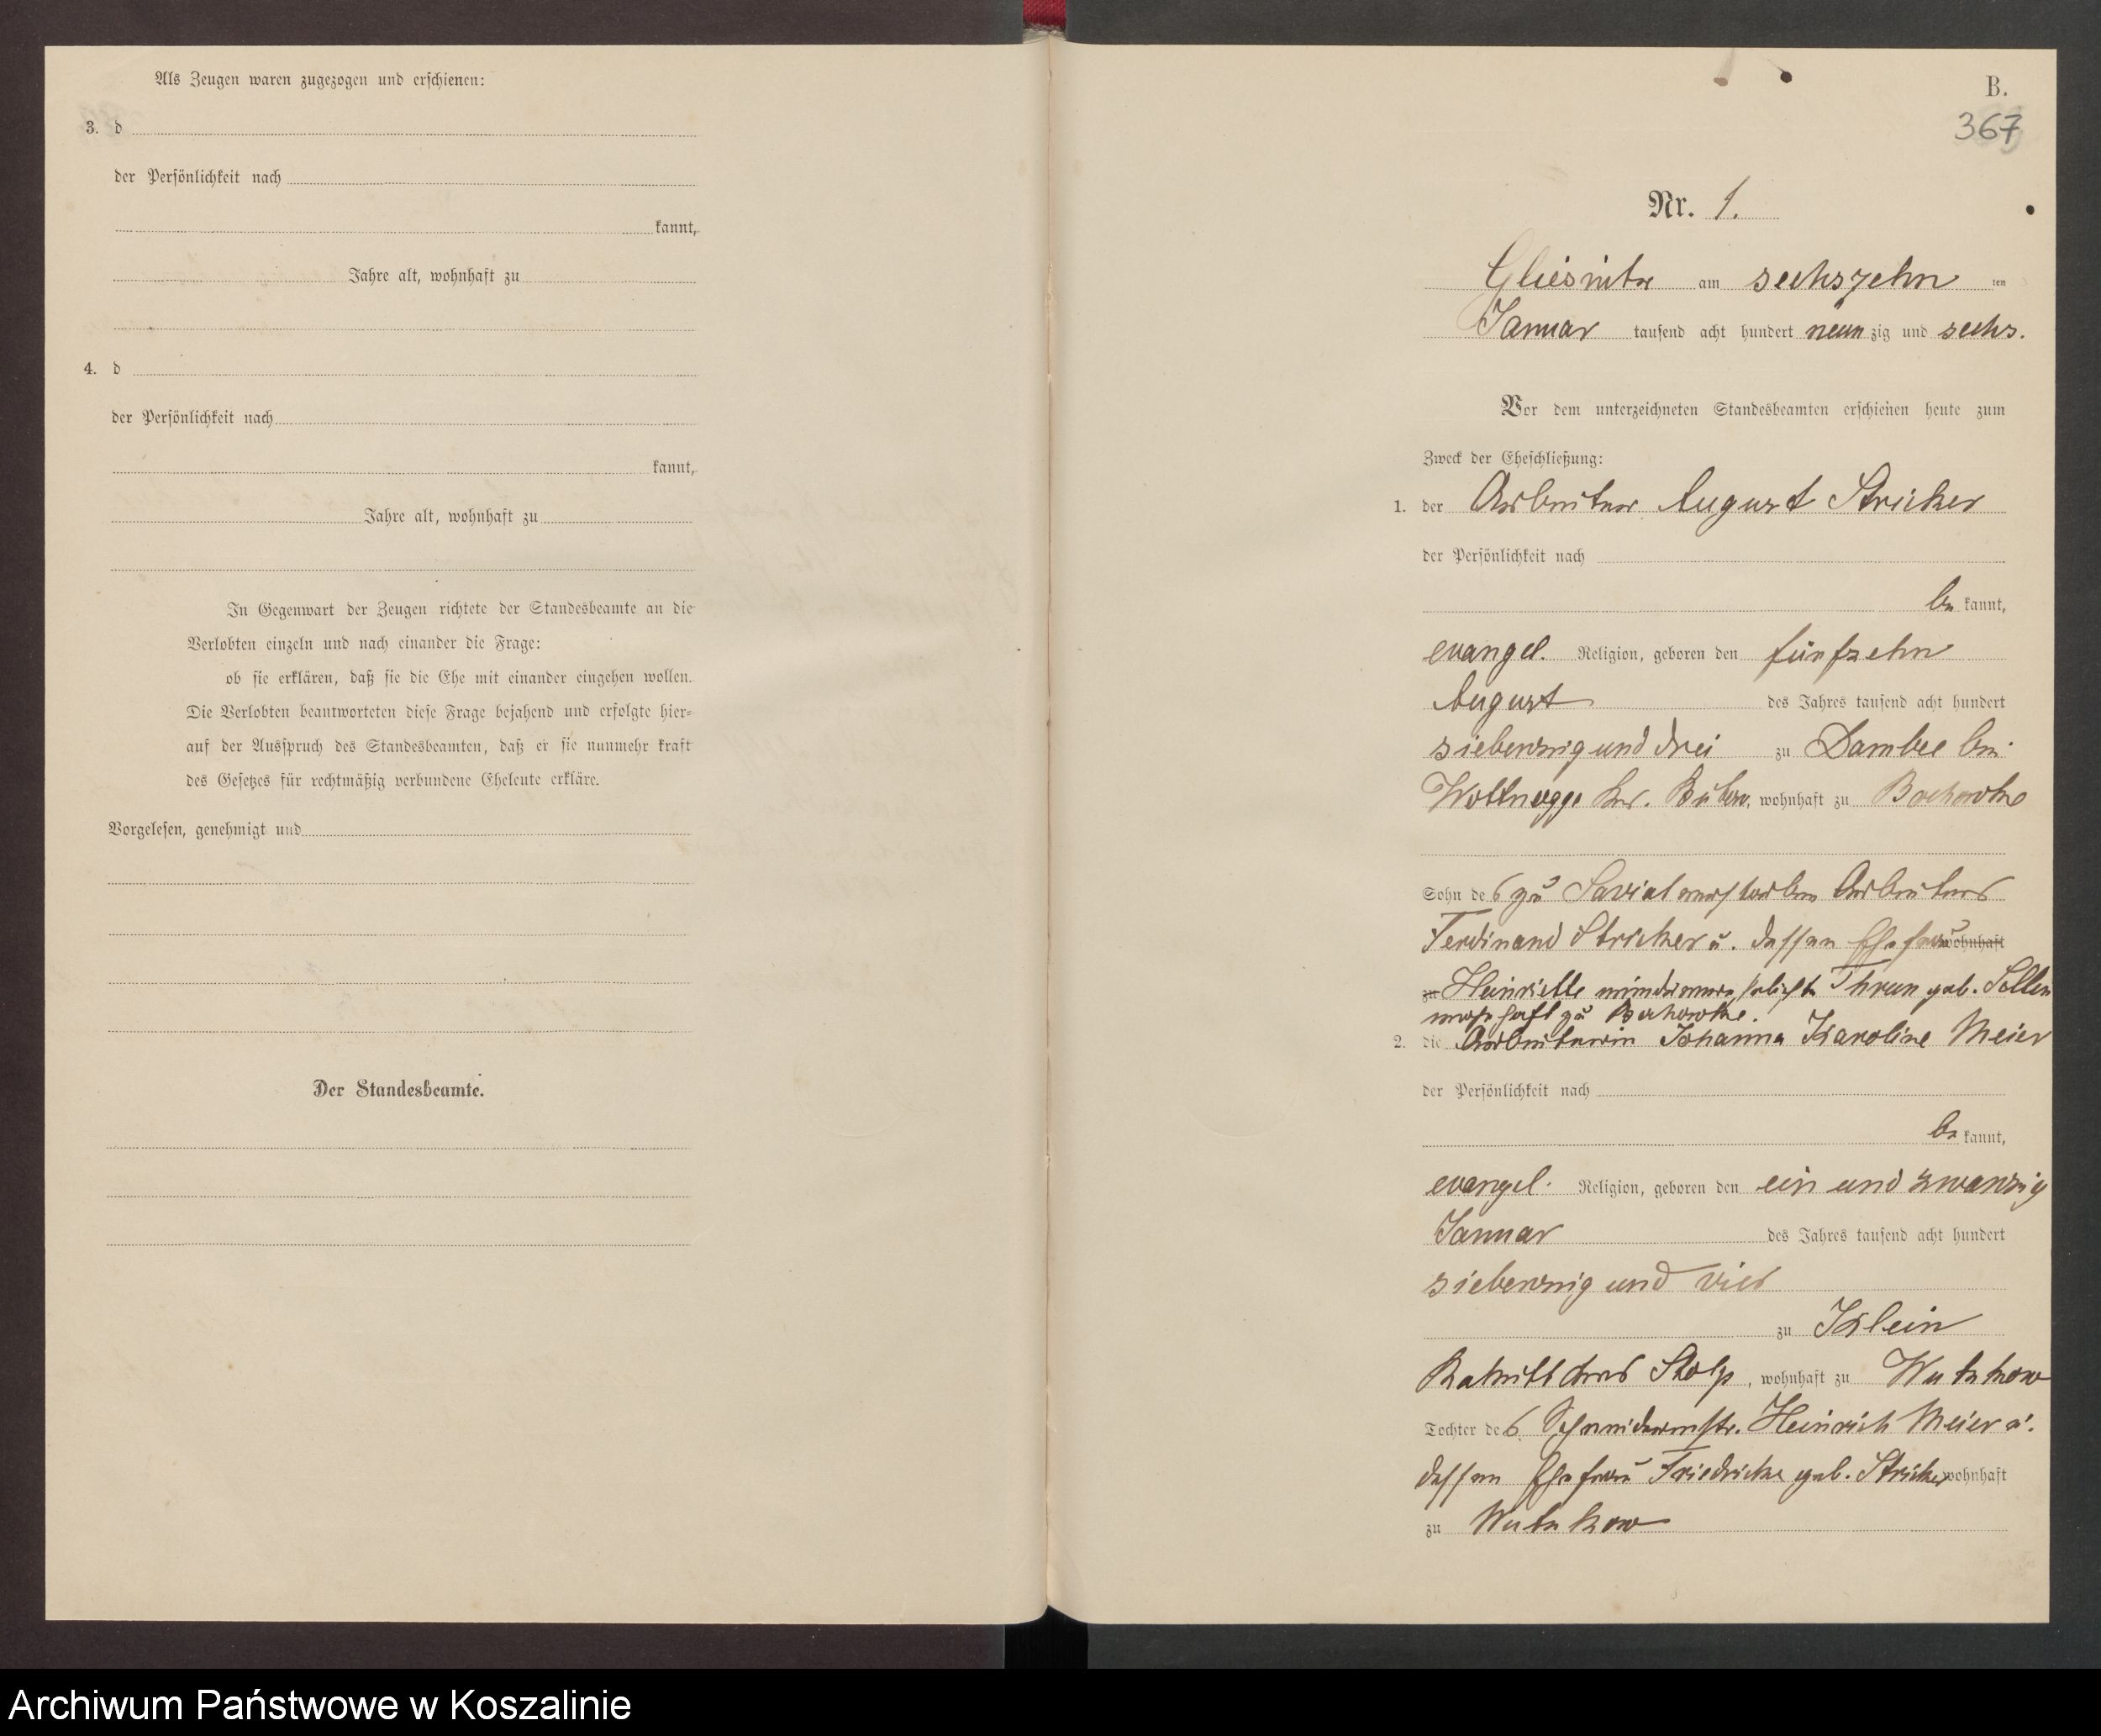 Als Zeugen waren zugezogen und erschienen:
3. d
der Persönlichkeit nach
kannt,
Jahre alt, wohnhaft zu
4. d
der Persönlichkeit nach
kannt,
Jahre alt, wohnhaft zu
In Gegenwart der Zeugen richtete der Standesbeamte an die
Verlobten einzeln und nach einander die Frage:
ob sie erklären, daß sie die Ehe mit einander eingehen wollen.
Die Verlobten beantworteten diese Frage bejahend und erfolgte hier=
auf der Ausspruch des Standesbeamten, daß er sie nunmehr kraft
des Gesetzes für rechtmäßig verbundene Eheleute erkläre.
Vorgelesen, genehmigt und
Der Standesbeamte.
B.
367
Nr. 1.
Gliesnitz am sechszehn ten
Januar tausend acht hundert neun zig und sechs.
Vor dem unterzeichneten Standesbeamten erschienen heute zum
Zweck der Eheschließung:
1. der Arbeiter August Stricker
der Persönlichkeit nach
be kannt,
evangel. Religion, geboren den fünfzehn
August des Jahres tausend acht hundert
siebenzig und drei zu Dambee bei
Wottnogge Kr. Bütow, wohnhaft zu
Sohn des zu Saviat verstorbenen Arbeiters
Ferdinand Stricker u. dessen Ehefrau wohnhaft
zu Henriette wiederverehelichte Thrun geb.
wohnhaft zu
2. die Arbeiterin Johanna Karoline Meier
der Persönlichkeit nach
be kannt,
evangel. Religion, geboren den ein und zwanzig
Januar des Jahres tausend acht hundert
siebenzig und vier
zu Klein
Rakitt Kreis Stolp, wohnhaft zu Wutzkow
Tochter des Schneidermstr. Heinrich Meier u.
dessen Ehefrau Friedricke geb. Stricker wohnhaft
zu Wutzkow
Archiwum Państwowe w Koszalinie